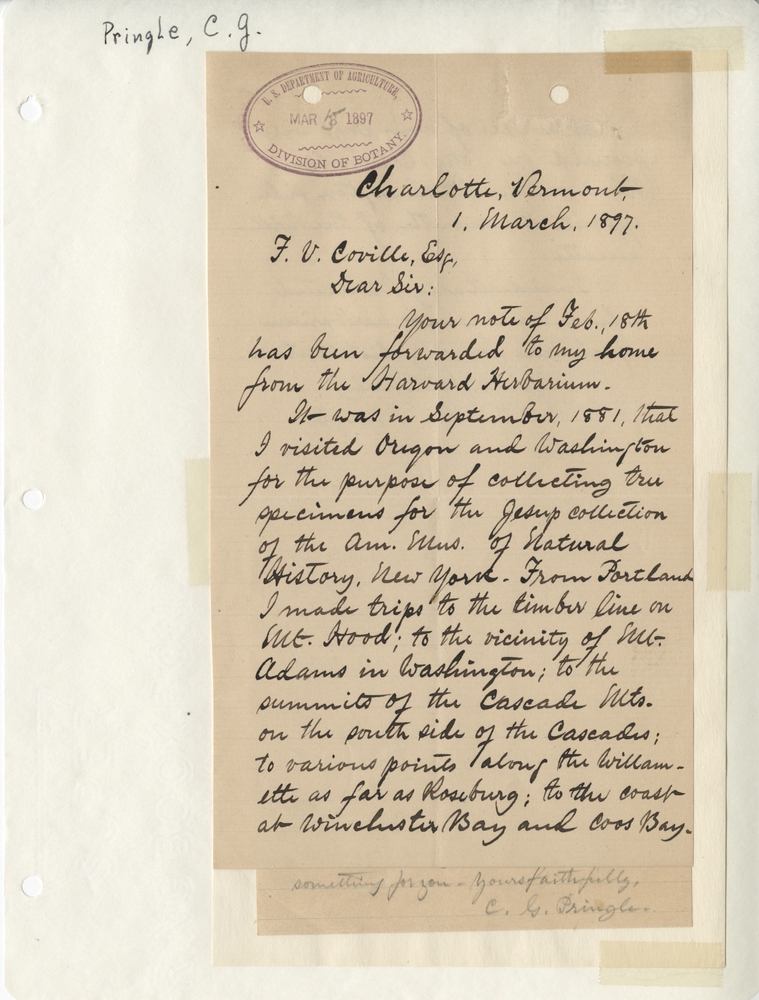 Pringle, C. G.
U. S. DEPARTMENT OF AGRICULTURE,
MAR 1897
DIVISION OF BOTANY.
Charlotte, Vermont,
1. March, 1897.
F. V. Coville, Esq,
Dear Sir:
Your note of Feb., 18th
has been forwarded to my home
from the Harvard Herbarium.
It was in September, 1881, that
I visited Oregon and Washington
for the purpose of collecting tree
specimens for the Jesup collection
of the Am. Mus. of Natural
History, New York. From Portland
I made trips to the timber line on
Mt. Hood; to the vicinity of Mt.
Adams in Washington; to the
summits of the Cascade Mts.
on the south side of the Cascades;
to various points along the Willam-
ette as far as Roseburg; to the coast
at Winchester Bay and Coos Bay.
something for you - Yours faithfully,
C. G. Pringle.